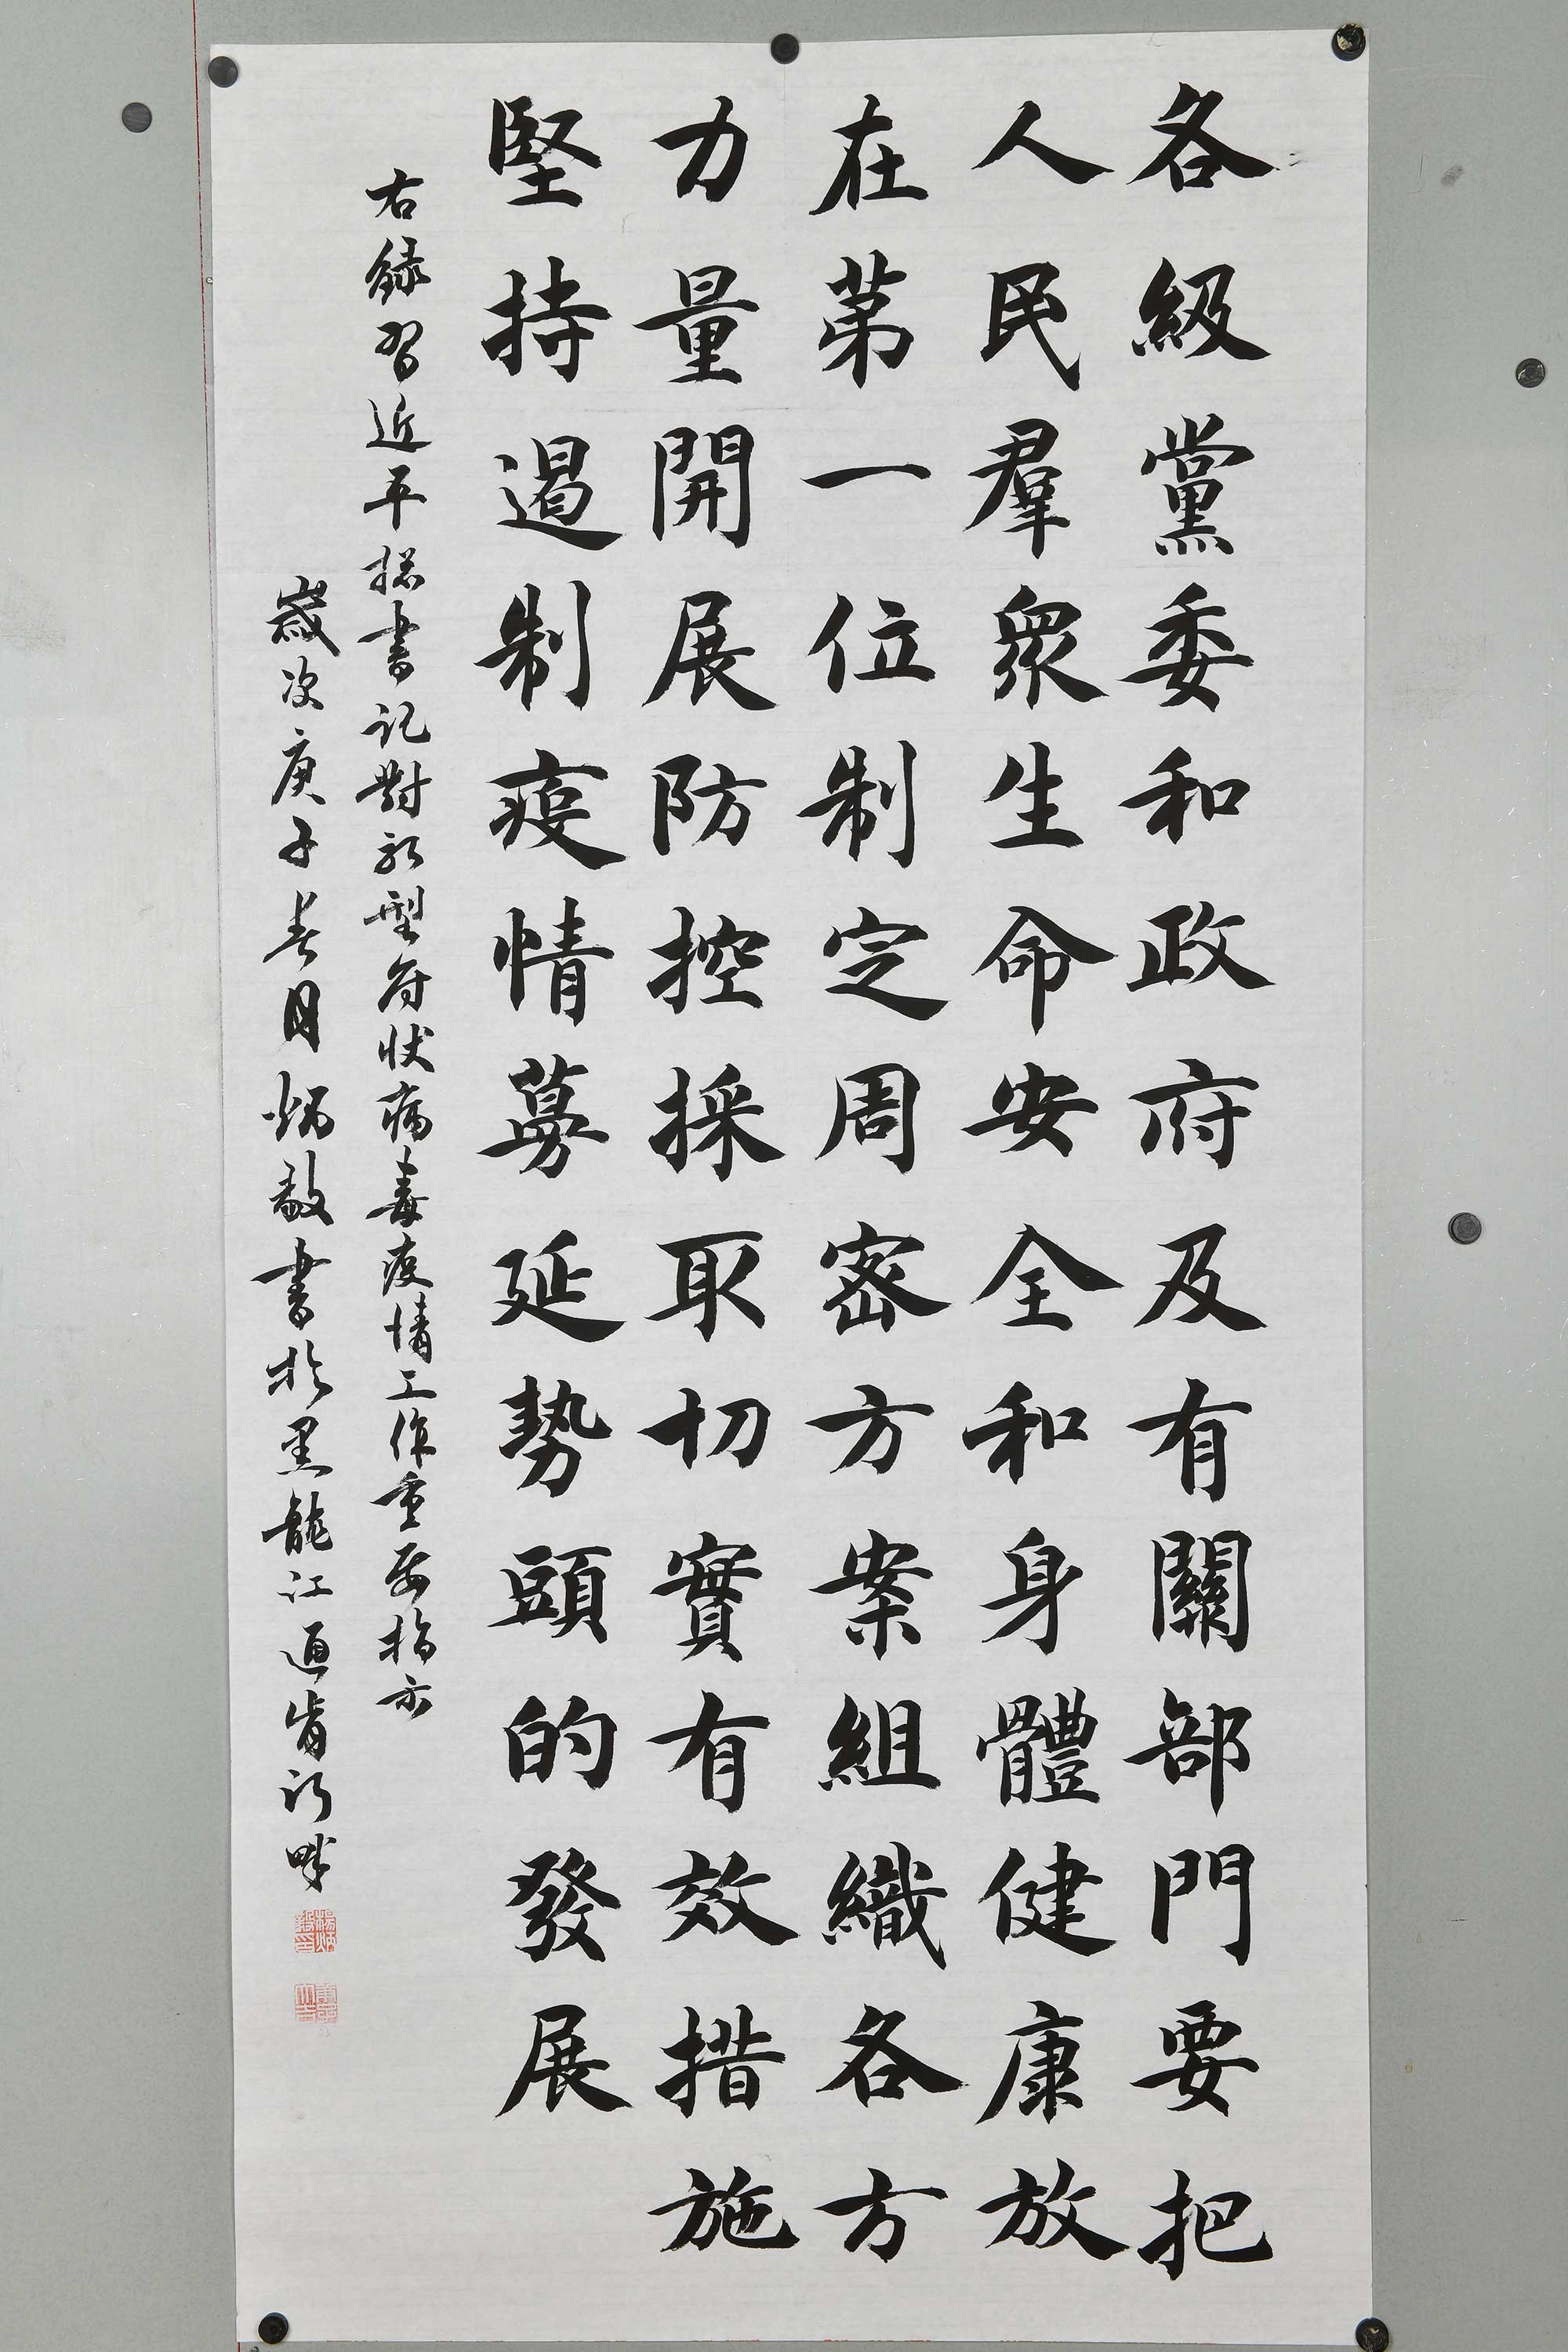 各級黨委和政府及有關部門要把
人民羣衆生命安全和身體健康放
在第一位制定周密方案組織各方
力量開展防控採取切實有效措施
堅持遏制疫情蔓延勢頭的發展
右錄習近平總書記對新型冠狀病毒疫情工作重要指示
歲次庚子春月炳毅書於黑龍江通肯河畔
楊炳毅印